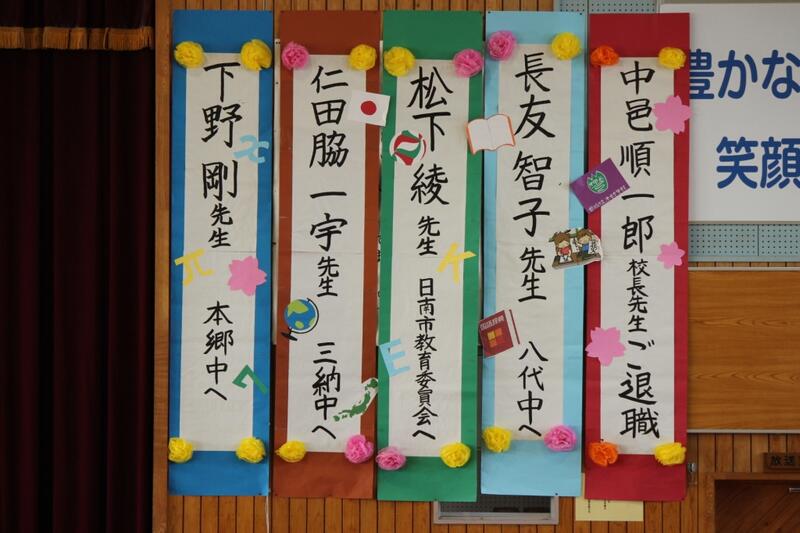 中邑順一郎校長先生ご退職
長友智子先生 八代中へ
松下綾先生 日南市教育委員会へ
仁田脇一宇先生 三納中へ
下野剛先生 本郷中へ
豊かな
笑顔
国語辞典
放送